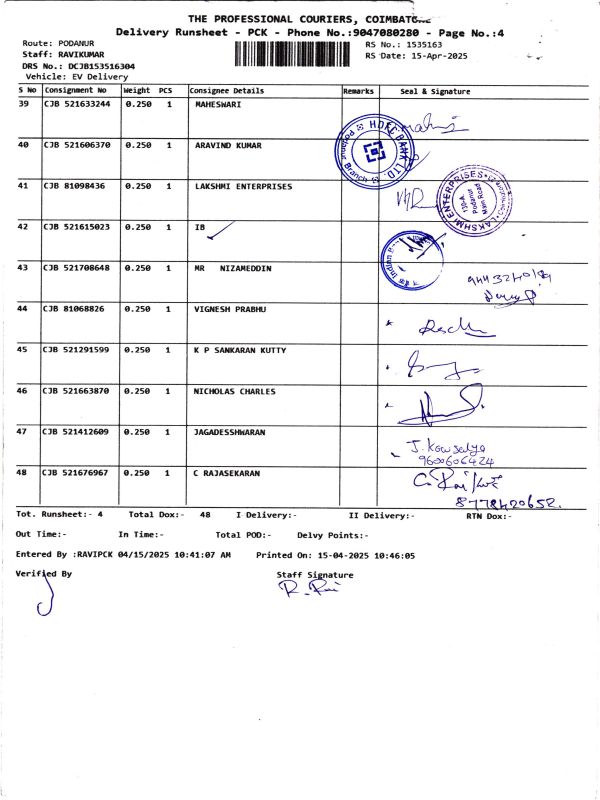 THE PROFESSIONAL COURIERS, COIMBATORE
Delivery Runsheet - PCK - Phone No.:9047080280 - Page No.:4
Route: PODANUR
RS No.: 1535163
Staff: RAVIKUMAR
RS Date: 15-Apr-2025
DRS No.: DCJB153516304
Vehicle: EV Delivery
S No Consignment No Weight PCS Consignee Details Remarks Seal & Signature
39 CJB 521633244 0.250 1 MAHESWARI
40 CJB 521606370 0.250 1 ARAVIND KUMAR
HDFC BANK LTD. Podanur Branch
41 CJB 81098436 0.250 1 LAKSHMI ENTERPRISES
LAKSHMI ENTERPRISES Podanur Main Road
42 CJB 521615023 0.250 1 IB
Indian
43 CJB 521708648 0.250 1 MR NIZAMEDDIN
44 CJB 81068826 0.250 1 VIGNESH PRABHU
45 CJB 521291599 0.250 1 K P SANKARAN KUTTY
46 CJB 521663870 0.250 1 NICHOLAS CHARLES
47 CJB 521412609 0.250 1 JAGADESSHWARAN
J. Kowsalya
9600606424
48 CJB 521676967 0.250 1 C RAJASEKARAN
8778420652.
Tot. Runsheet:- 4 Total Dox:- 48 I Delivery:- II Delivery:- RTN Dox:-
Out Time:- In Time:- Total POD:- Delvy Points:-
Entered By :RAVIPCK 04/15/2025 10:41:07 AM Printed On: 15-04-2025 10:46:05
Verified By Staff Signature